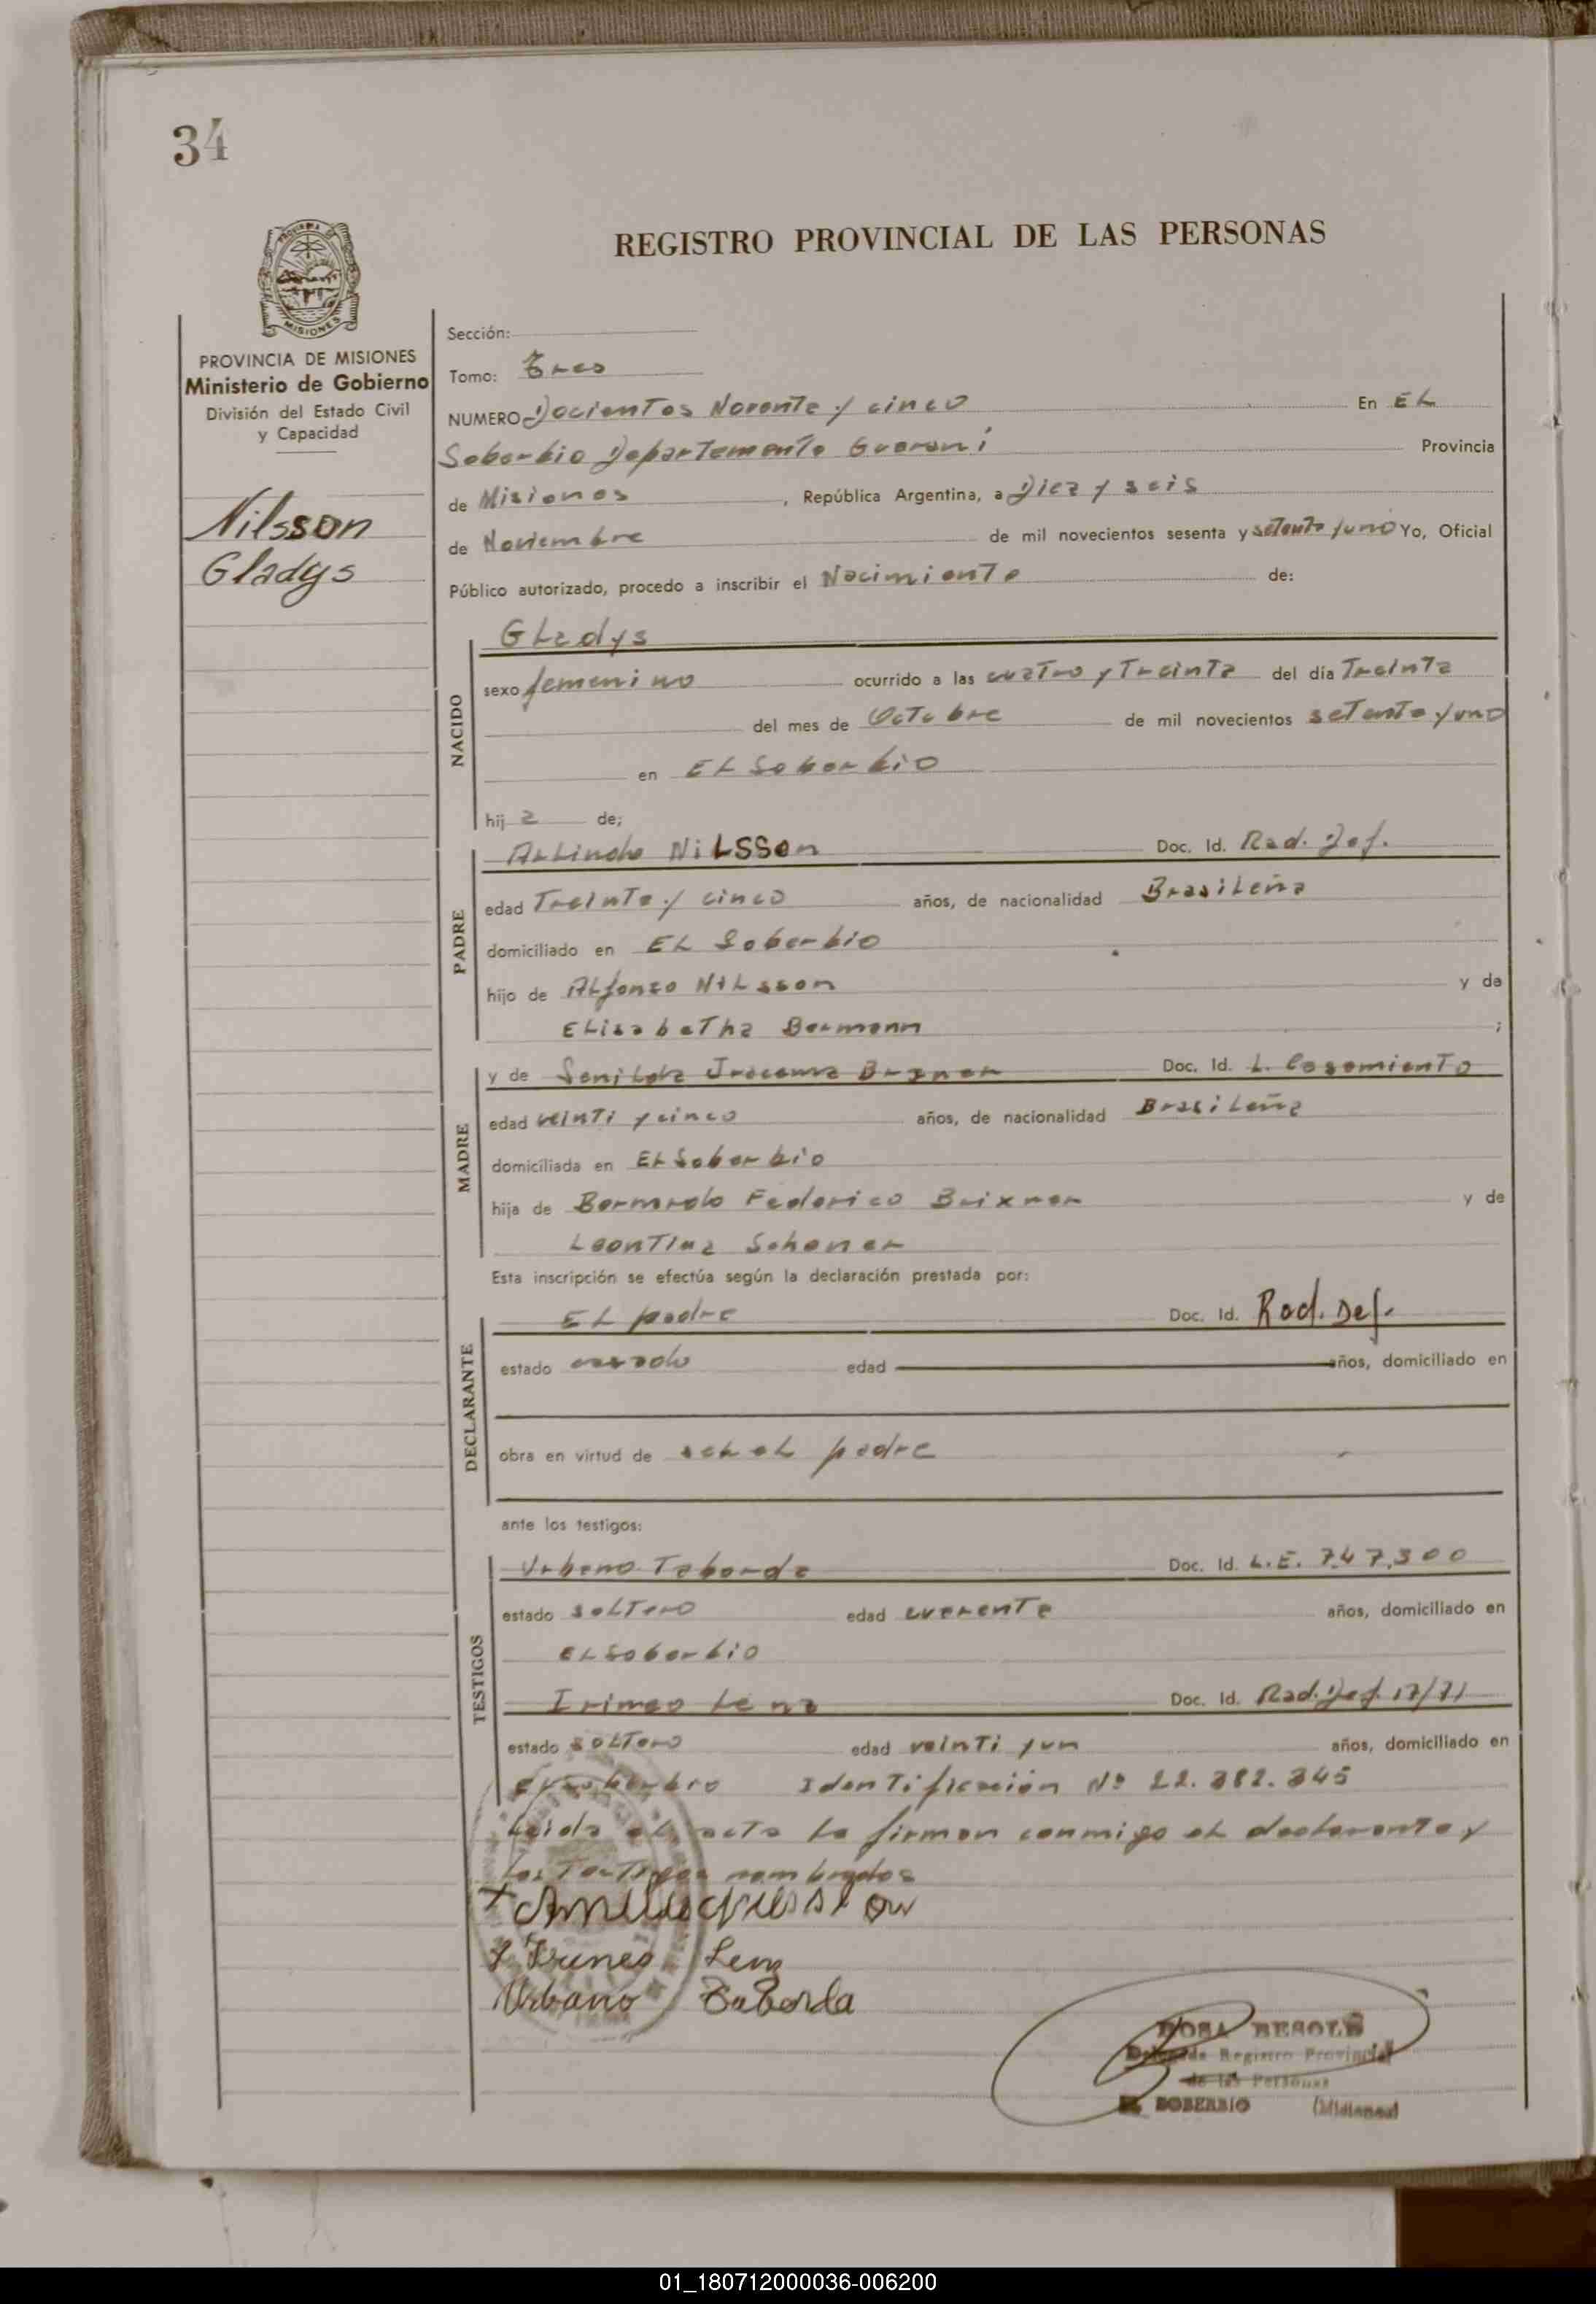 34
REGISTRO PROVINCIAL DE LAS PERSONAS
MISIONES
PROVINCIA DE MISIONES
Ministerio de Gobierno
División del Estado Civil
y Capacidad
Nilsson
Gladys
Sección:
Tomo: Tres
NUMERO Docientos Noventa y cinco En EL
Soberbio Departamento Guarani Provincia
de Misiones, República Argentina, a Diez y seis
de Noviembre de mil novecientos sesenta y setenta y uno Yo, Oficial
Público autorizado, procedo a inscribir el Nacimiento de:
NACIDO
Gladys
sexo femenino ocurrido a las cuatro y Treinta del día Treinta
del mes de Octubre de mil novecientos setenta y uno
en EL Soberbio
hija de;
PADRE
Arlindo NiLSSon Doc. Id. Rad. Def.
edad Treinta y cinco años, de nacionalidad BrasiLeña
domiciliado en EL Soberbio
hijo de ALfonso NiLsson y de
ELisabetha Bermann ;
MADRE
y de Senilda Doc. Id. L. Casamiento
edad veinti y cinco años, de nacionalidad BrasiLeña
domiciliada en EL Soberbio
hija de Bernardo Federico Brixner y de
LeonTina Schoner
Esta inscripción se efectúa según la declaración prestada por:
DECLARANTE
EL padre Doc. Id. Rad. Def.
estado casado edad años, domiciliado en
obra en virtud de ser eL padre
ante los testigos:
TESTIGOS
Urbano Taborda Doc. Id. L.E. 7.47.300
estado soLTero edad cuarenta años, domiciliado en
EL Soberbio
Irineo Lenz Doc. Id. Rad. Def. 17/71
estado soLTero edad veinTi y un años, domiciliado en
EL Soberbio Identificación Nº 22.382.345
Leida eL acta La firman conmigo eL declarante y
Los Testigos nombrados
Irineo Lenz
Urbano Taborda
ROSA BESOLD
Delegada Registro Provincial
de las Personas
EL SOBERBIO (Misiones)
01_180712000036-006200